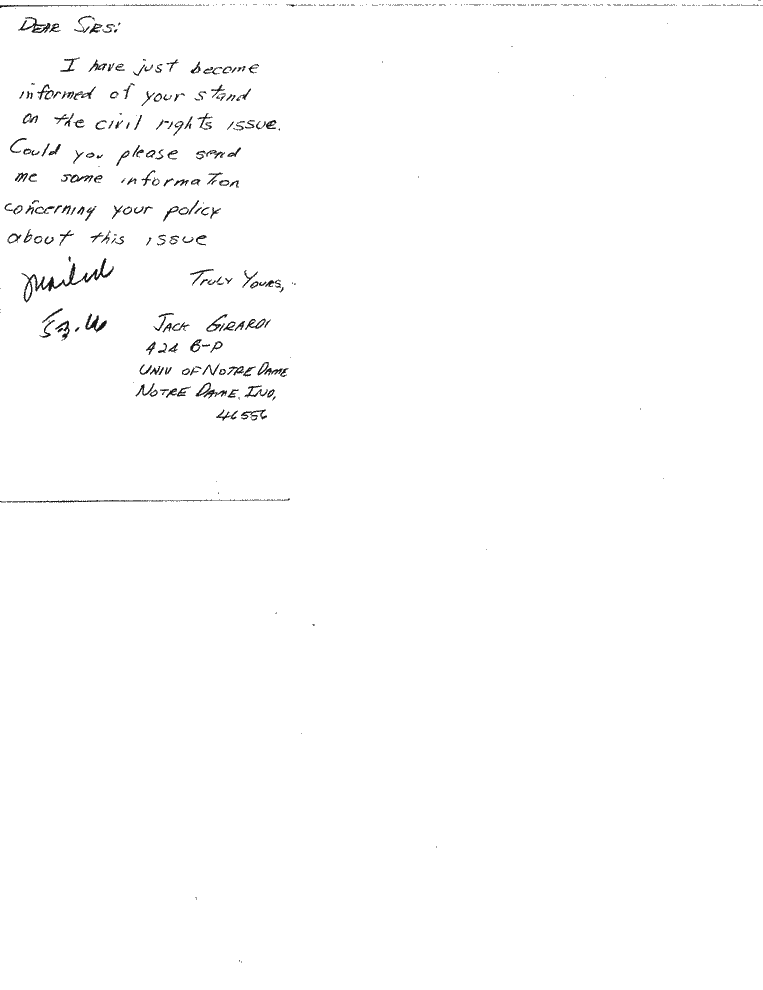 DEAR SIRS:
I have just become
informed of your stand
on the civil rights issue.
Could you please send
me some information
concerning your policy
about this issue
mailed
TRULY YOURS,
JACK GIRARDI
424 B-P
UNIV OF NOTRE DAME
NOTRE DAME, IND,
46556